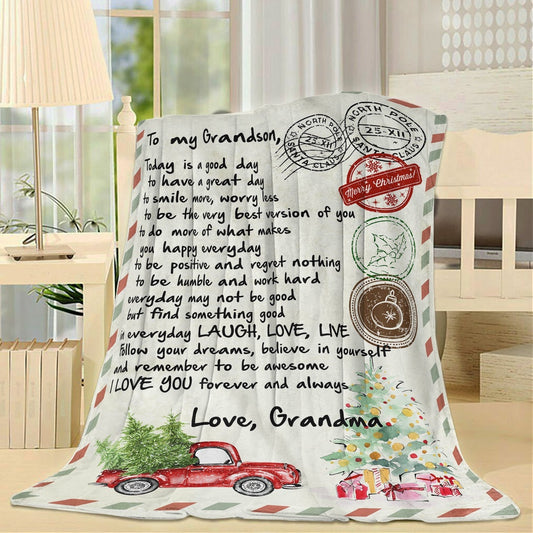 NORTH POLE
25-XII
SANTA CLAUS
NORTH POLE
25-XII
SANTA CLAUS
To my Grandson,
Today is a good day
to have a great day
to smile more, worry less
to be the very best version of you
to do more of what makes
you happy everyday
to be positive and regret nothing
to be humble and work hard
everyday may not be good
but find something good
in everyday LAUGH, LOVE, LIVE
Follow your dreams, believe in yourself
and remember to be awesome
I LOVE YOU forever and always
Love, Grandma
Merry Christmas!